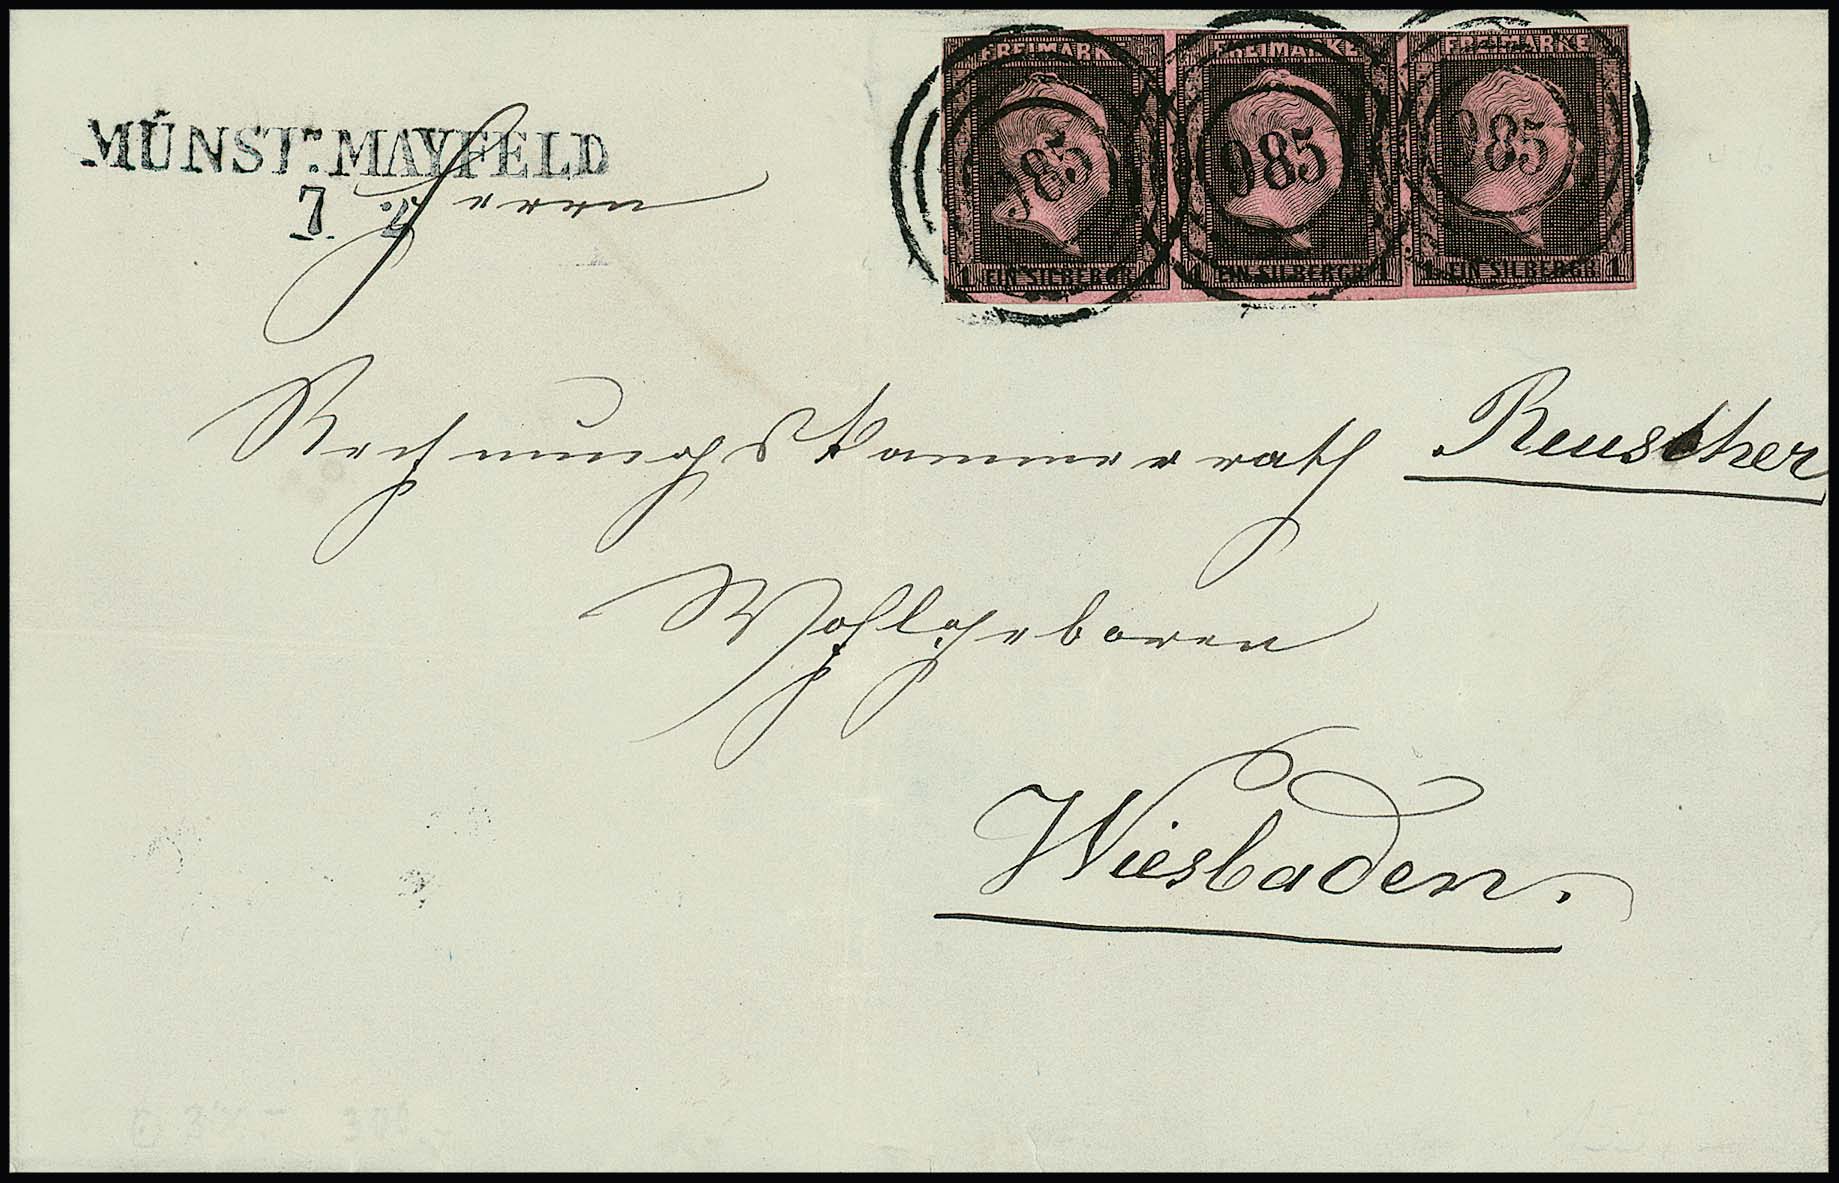 FREIMARKE FREIMARKE FREIMARKE
985 985 985
1 EIN SILBERGR. 1 1 EIN SILBERGR. 1 1 EIN SILBERGR. 1
MÜNSTR. MAYFELD
7 2
Herrn
Rechnungskammerrath Reuscher
Wohlgeboren
Wiesbaden.